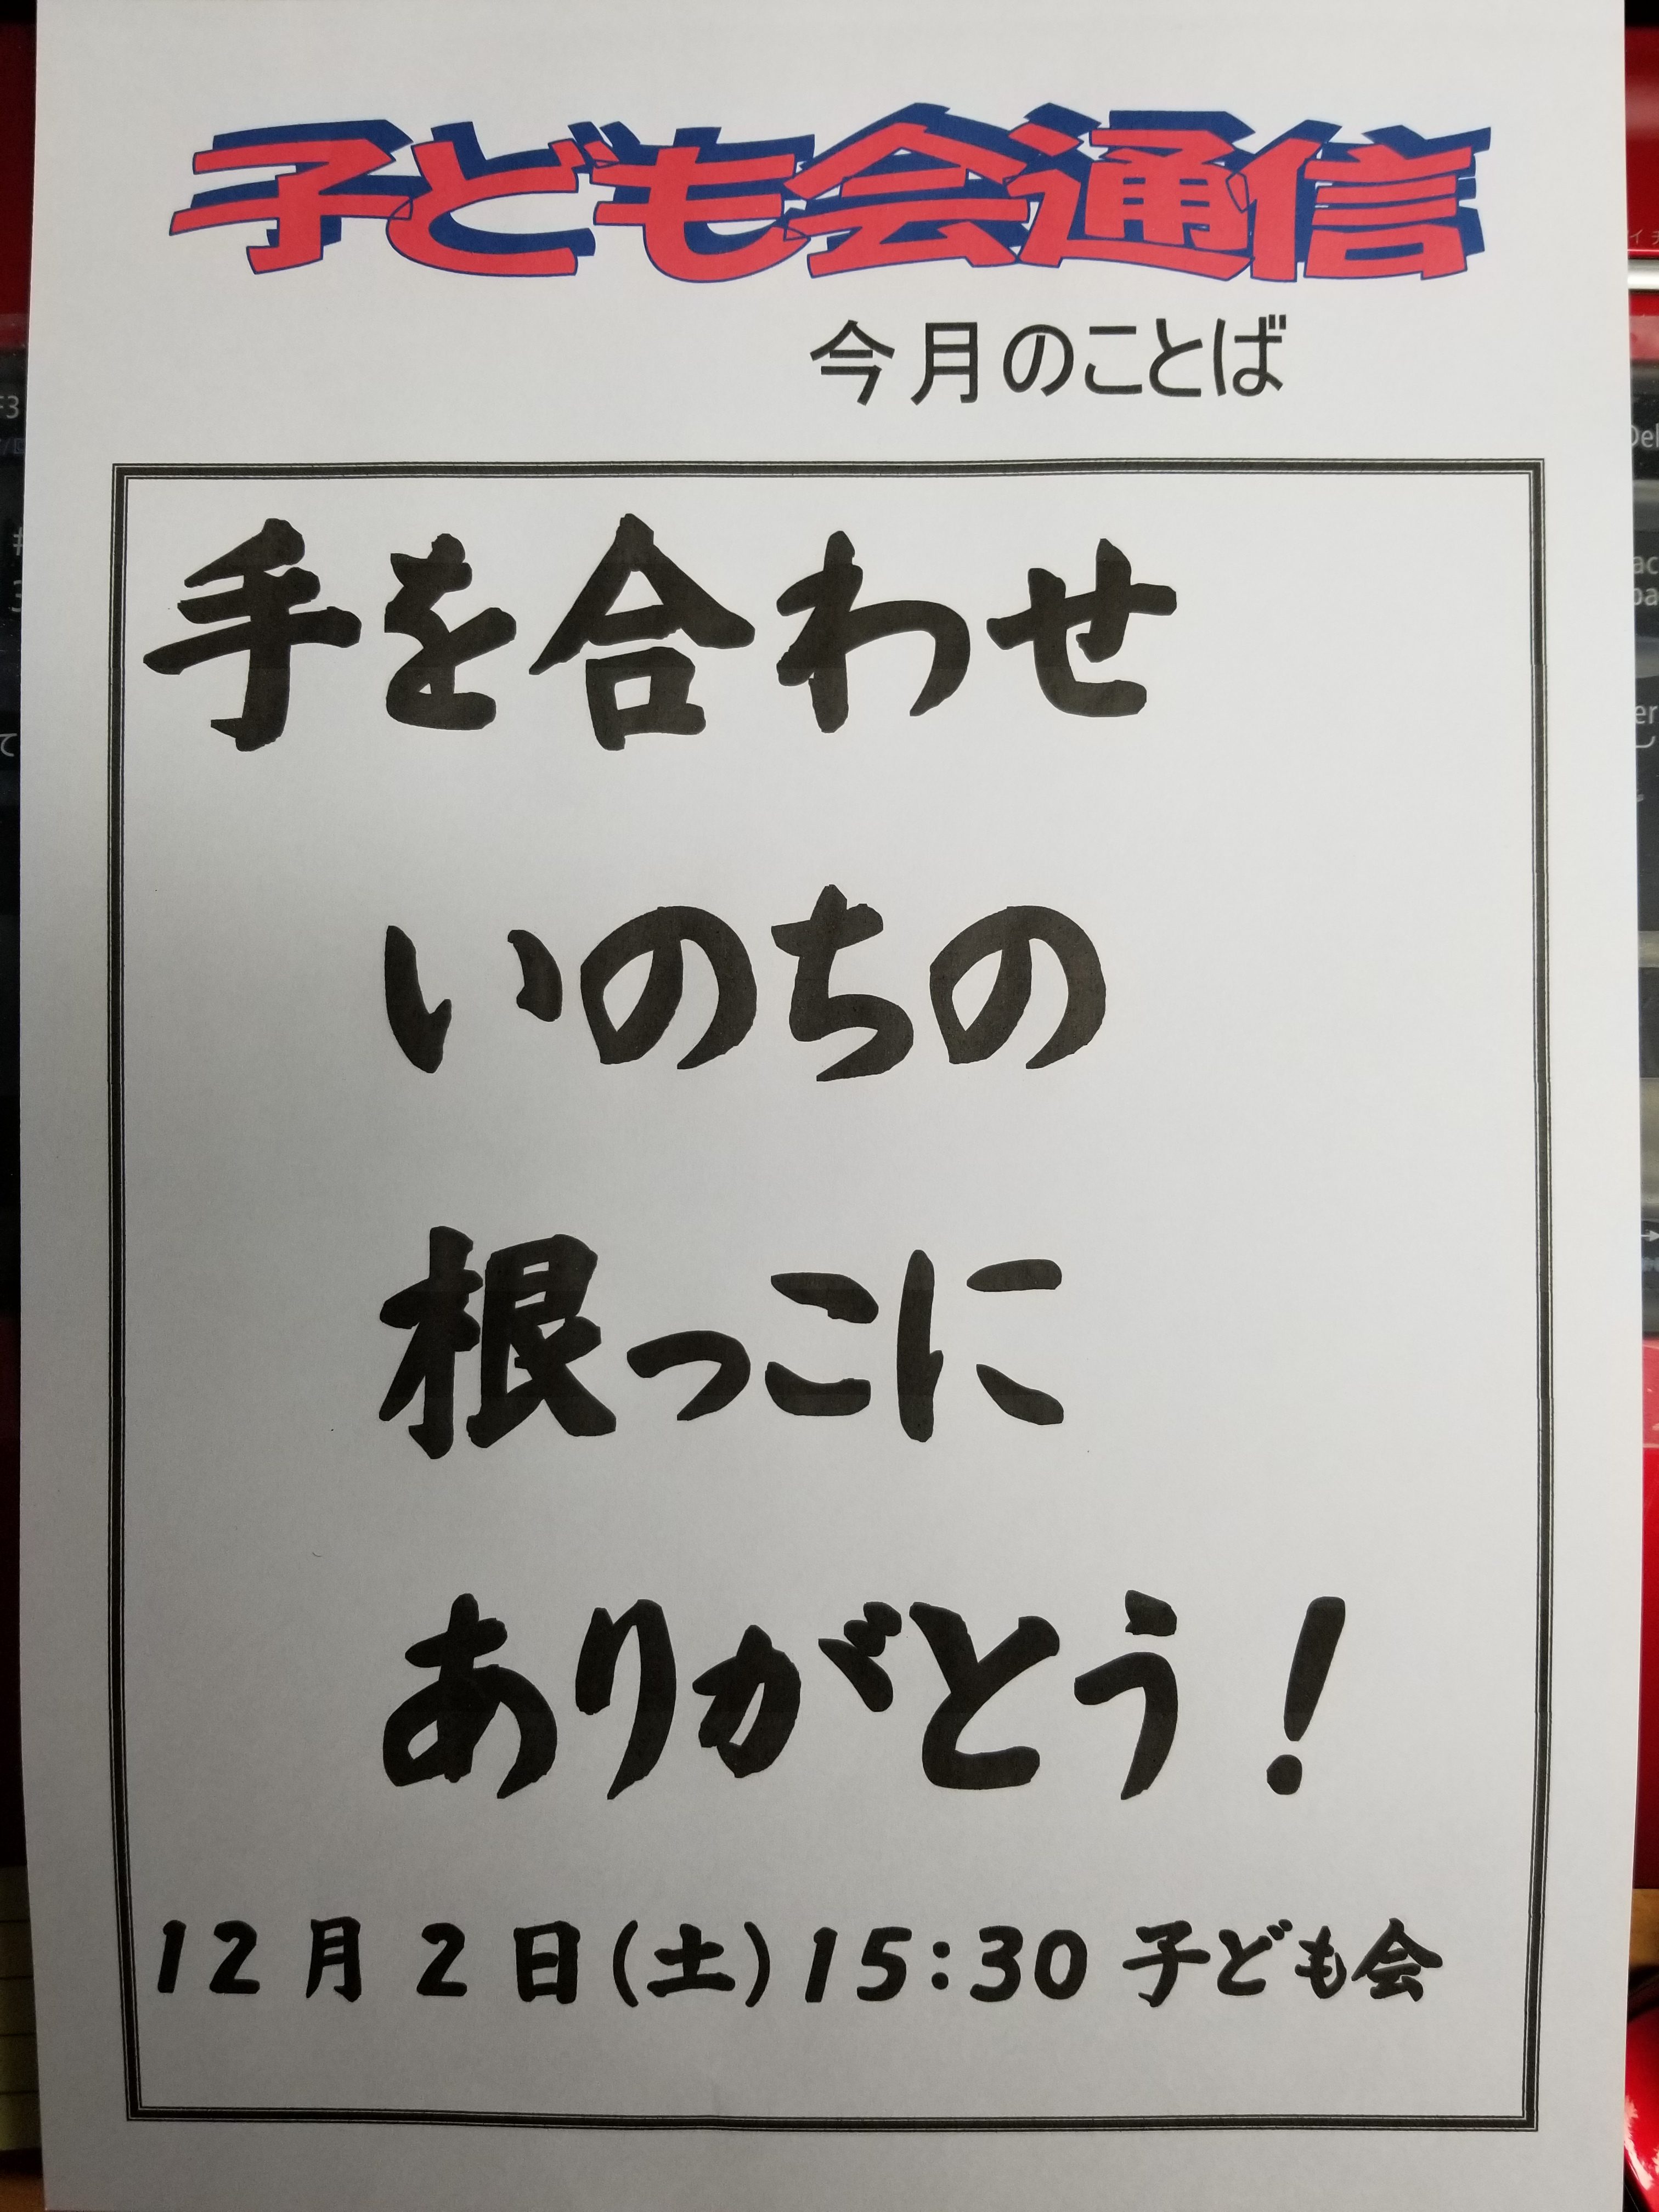 子ども会通信
今月のことば
手を合わせ
いのちの
根っこに
ありがとう！
12月2日(土)15:30子ども会